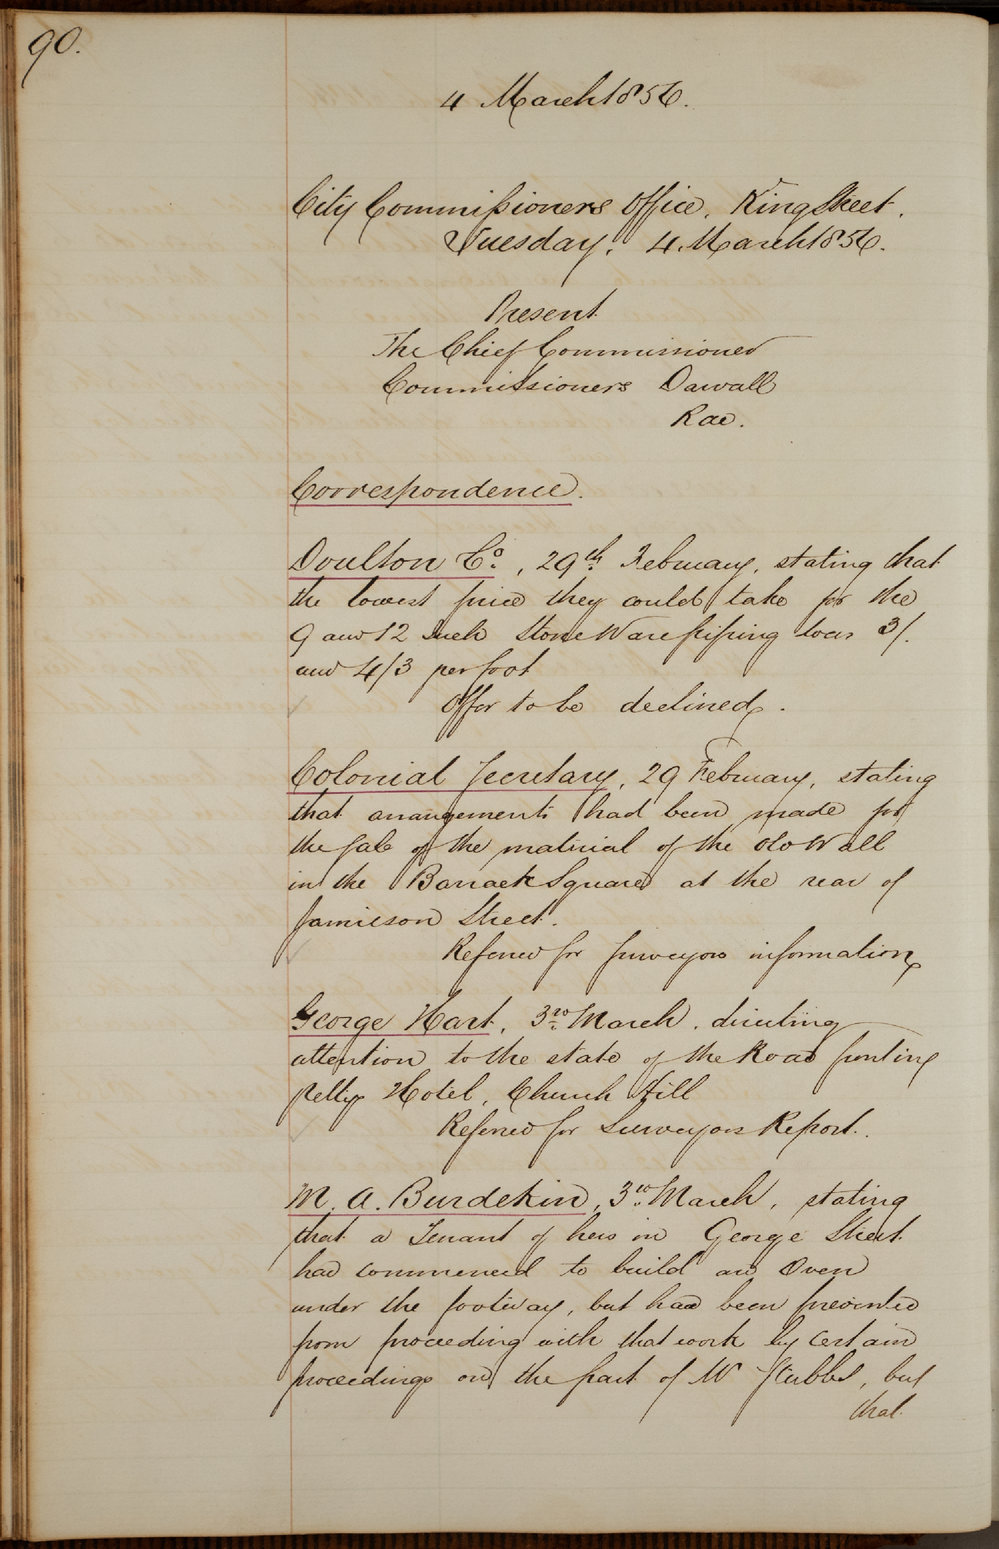 90.
4 March 1856.
City Commissioners Office, King Street.
Tuesday, 4 March 1856.
Present
The Chief Commissioner
Commissioners Darvall
Rae.
Correspondence.
Doulton Co., 29th February, stating that
the lowest price they could take for the
9 and 12 Inch Stone Ware piping was 3/.
and 4/3 per foot
Offer to be declined.
Colonial Secretary, 29 February, stating
that arrangements had been made for
the sale of the material of the old Wall
in the Barrack Square at the rear of
Jamieson Street.
Referred for Surveyors information
George Hart, 3rd March, directing
attention to the state of the Road fronting
Pettys Hotel, Church Hill
Referred for Surveyors Report.
M. A. Burdekin, 3rd March, stating
that a Tenant of hers in George Street
had commenced to build an Oven
under the footway, but had been prevented
from proceeding with that work by certain
proceedings on the part of Mr Stubbs, but
that